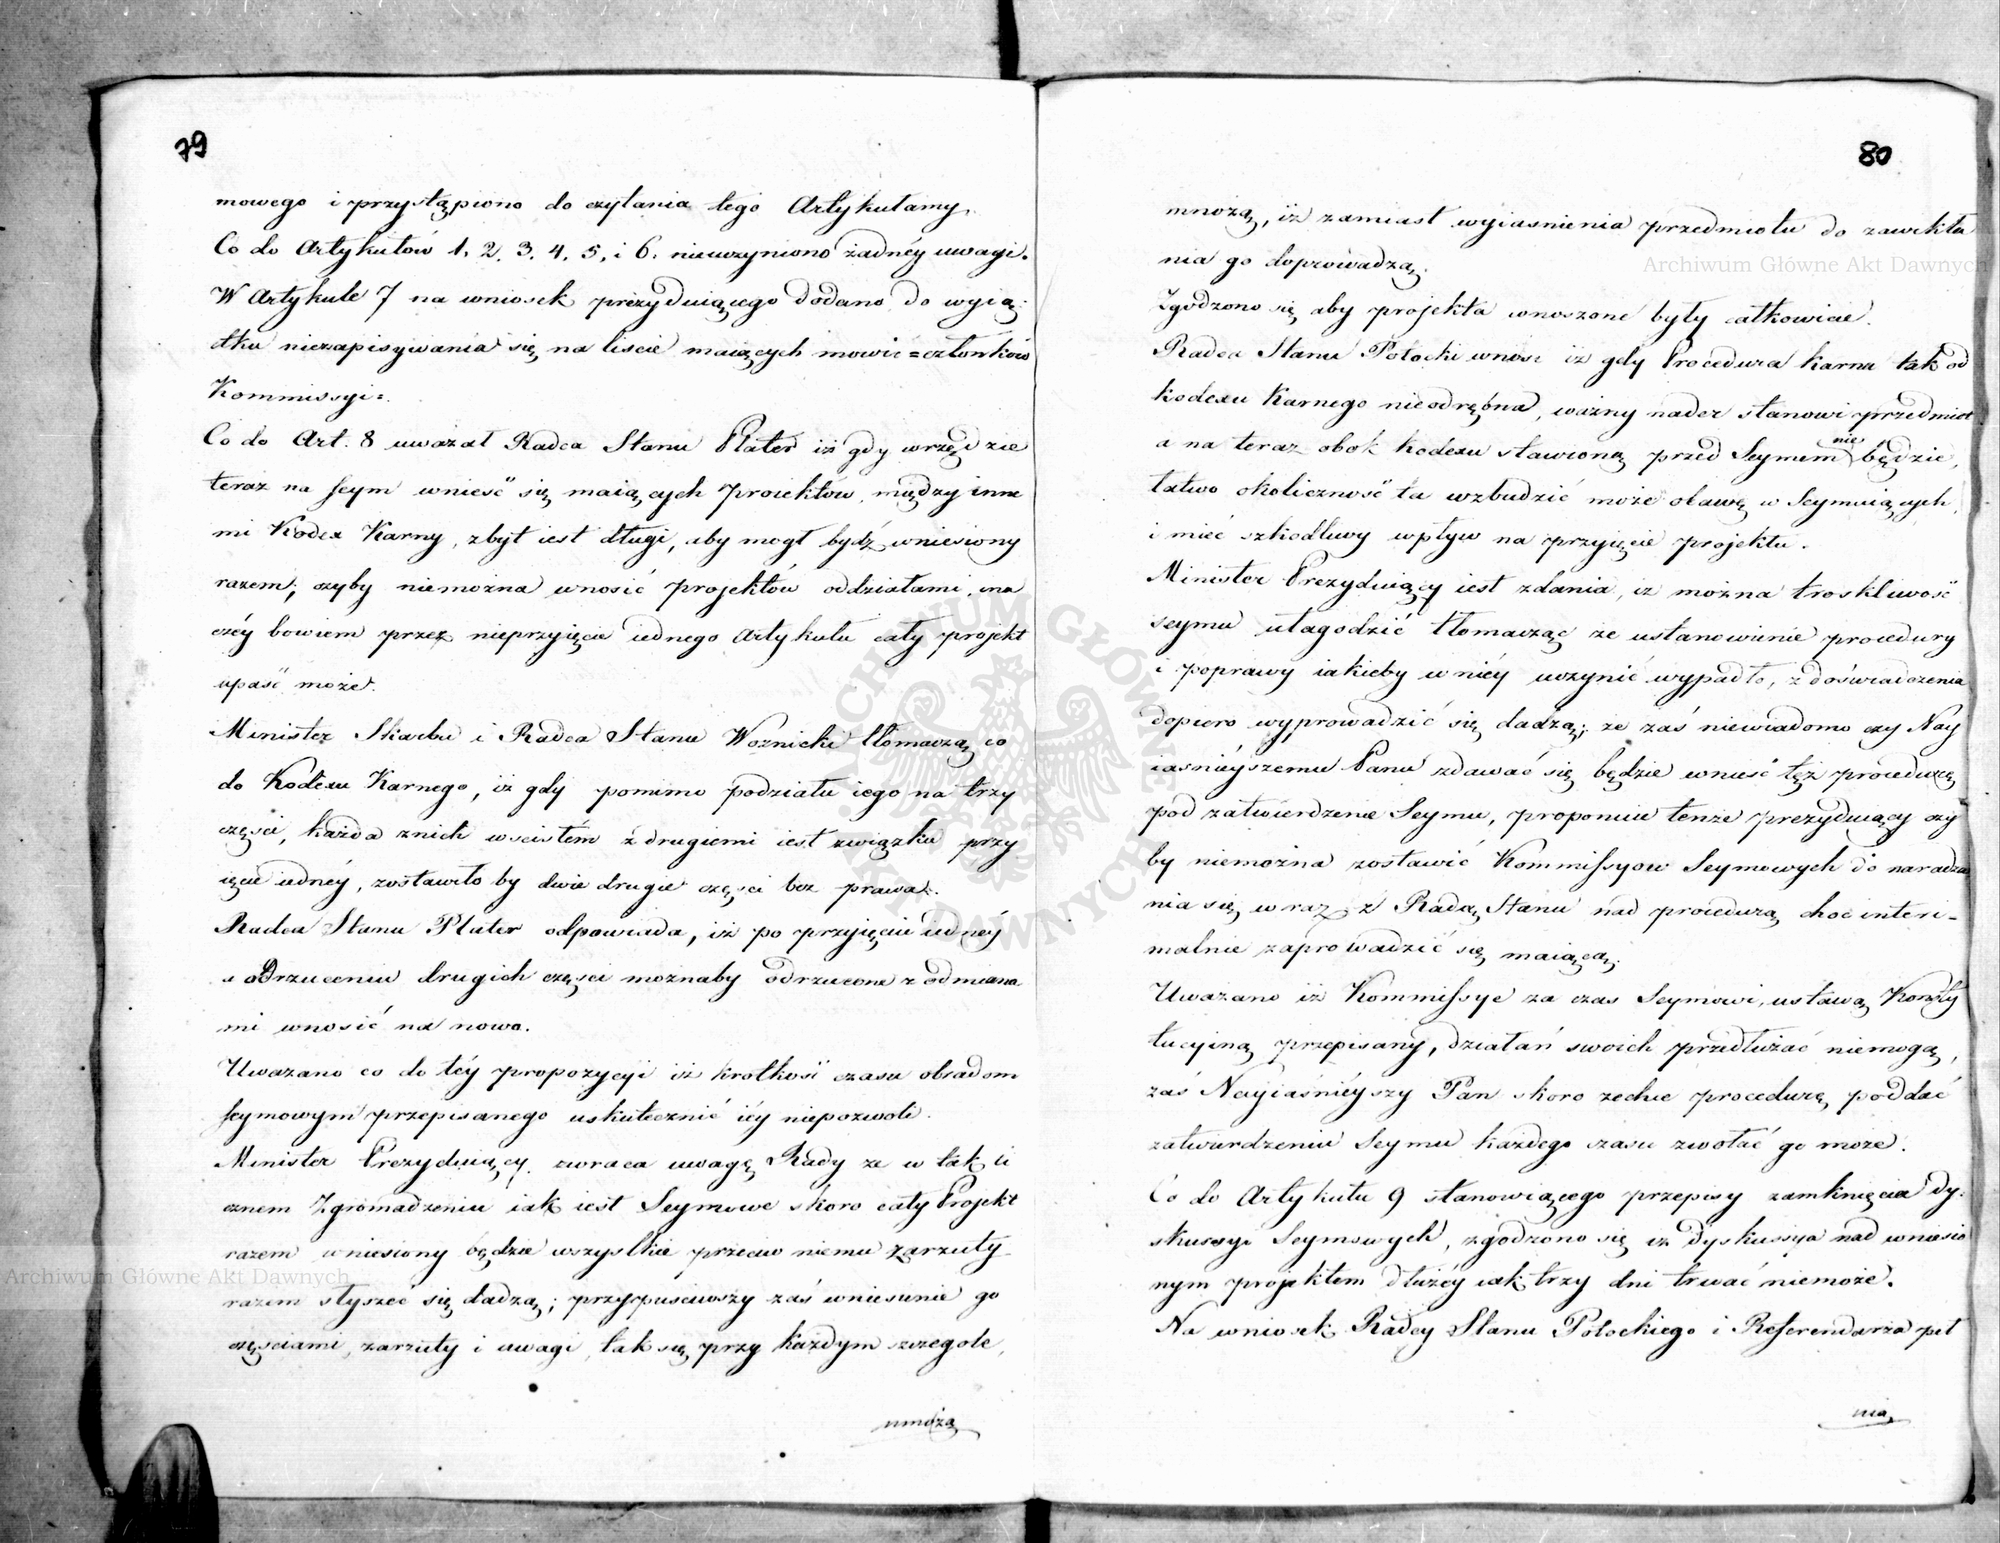 79
mowego i przystąpiono do czytania tego Artykułamy.
Co do Artykułów 1. 2. 3. 4. 5. i 6. nieuczyniono żadnéy uwagi.
W Artykule 7 na wniosek prezyduiącego dodano do wyią:
tku niezapisywania się na liscie maiących mowić = członków
Kommissyi =.
Co do Art. 8 uważał Radca Stanu Plater iż gdy wrzędzie
teraz na seym wnieść się maiących proiektów, między inne
mi Kodex Karny, zbyt iest długi, aby mogł bydź wniesiony
razem; czyby niemożna wnosić projektów oddziałami, ina
czéy bowiem przez nieprzyięcie iednego Artykułu cały projekt
upaść może.
Minister Skarbu i Radca Stanu Woznicki tłomaczą co
do Kodexu Karnego, iż gdy pomimo podziału iego na trzy
części, każda znich wscisłém z drugiemi iest związku przy
ięcie iednéy, zostawiło by dwie drugie części bez prawa.
Radca Stanu Plater odpowiada, iż po przyięciu iednéy
a odrzuceniu drugich części możnaby odrzucone z odmiana
mi wnosić na nowo.
Uważano co do téy propozycyi iż krotkość czasu obradom
seymowym przepisanego uskutecznić iéy niepozwoli.
Minister Prezyduiący zwraca uwagę Rady że w tak li
cznem Zgromadzeniu iak iest Seymowe skoro cały Projekt
razem wniesiony będzie wszystkie przeciw niemu zarzuty
razem słyszeć się dadzą; przypuściwszy zaś wniesienie go
częściami, zarzuty i uwagi tak się przy każdym szczegole,
umnożą
80
mnożą, iż zamiast wyiasnienia przedmiotu do zawikła
nia go doprowadzą.
Zgodzono się aby projekta wnoszone były całkowicie.
Radca Stanu Potocki wnosi iż gdy Procedura karna tak od
kodexu Karnego nieodrębna, ważny nader stanowi przedmiot
a na teraz obok kodexu stawioną przed Seymem nie będzie,
łatwo okoliczność ta wzbudzić może obawę w Seymuiących,
i mieć szkodliwy wpływ na przyięcie projektu.
Minister Prezyduiący iest zdania, iż można troskliwość
seymu ułagodzić tłomacząc że ustanowienie procedury
i poprawy iakieby w niéy uczynić wypadło, z doświadczenia
dopiero wyprowadzić się dadzą; że zaś niewiadomo czy Nay
iaśniéyszemu Panu zdawać się będzie wnieść też procedurę
pod zatwierdzenie Seymu, proponuie tenże prezyduiący czy
by niemożna zostawić Kommissyow Seymowych do naradza
nia się wraz z Radą Stanu nad procedurą choć interi-
malnie zaprowadzić się maiącą.
Uważano iż Kommissye za czas Seymowi, ustawą Konsty
tucyiną przepisany, działań swoich przedłużać niemogą,
zaś Nayiaśniéyszy Pan skoro zechce procedurę poddać
zatwierdzeniu Seymu każdego czasu zwołać go może.
Co do Artykułu 9 stanowiącego przepisy zamknięcia dy:
skussyi Seymowych, zgodzono się iż dyskussya nad wniesio
nym projektem dłużéy iak trzy dni trwać niemoże.
Na wniosek Radcy Stanu Potockiego i Referendarza peł
nią
Archiwum Główne Akt Dawnych
Archiwum Główne Akt Dawnych
ARCHIWUM GŁÓWNE AKT DAWNYCH